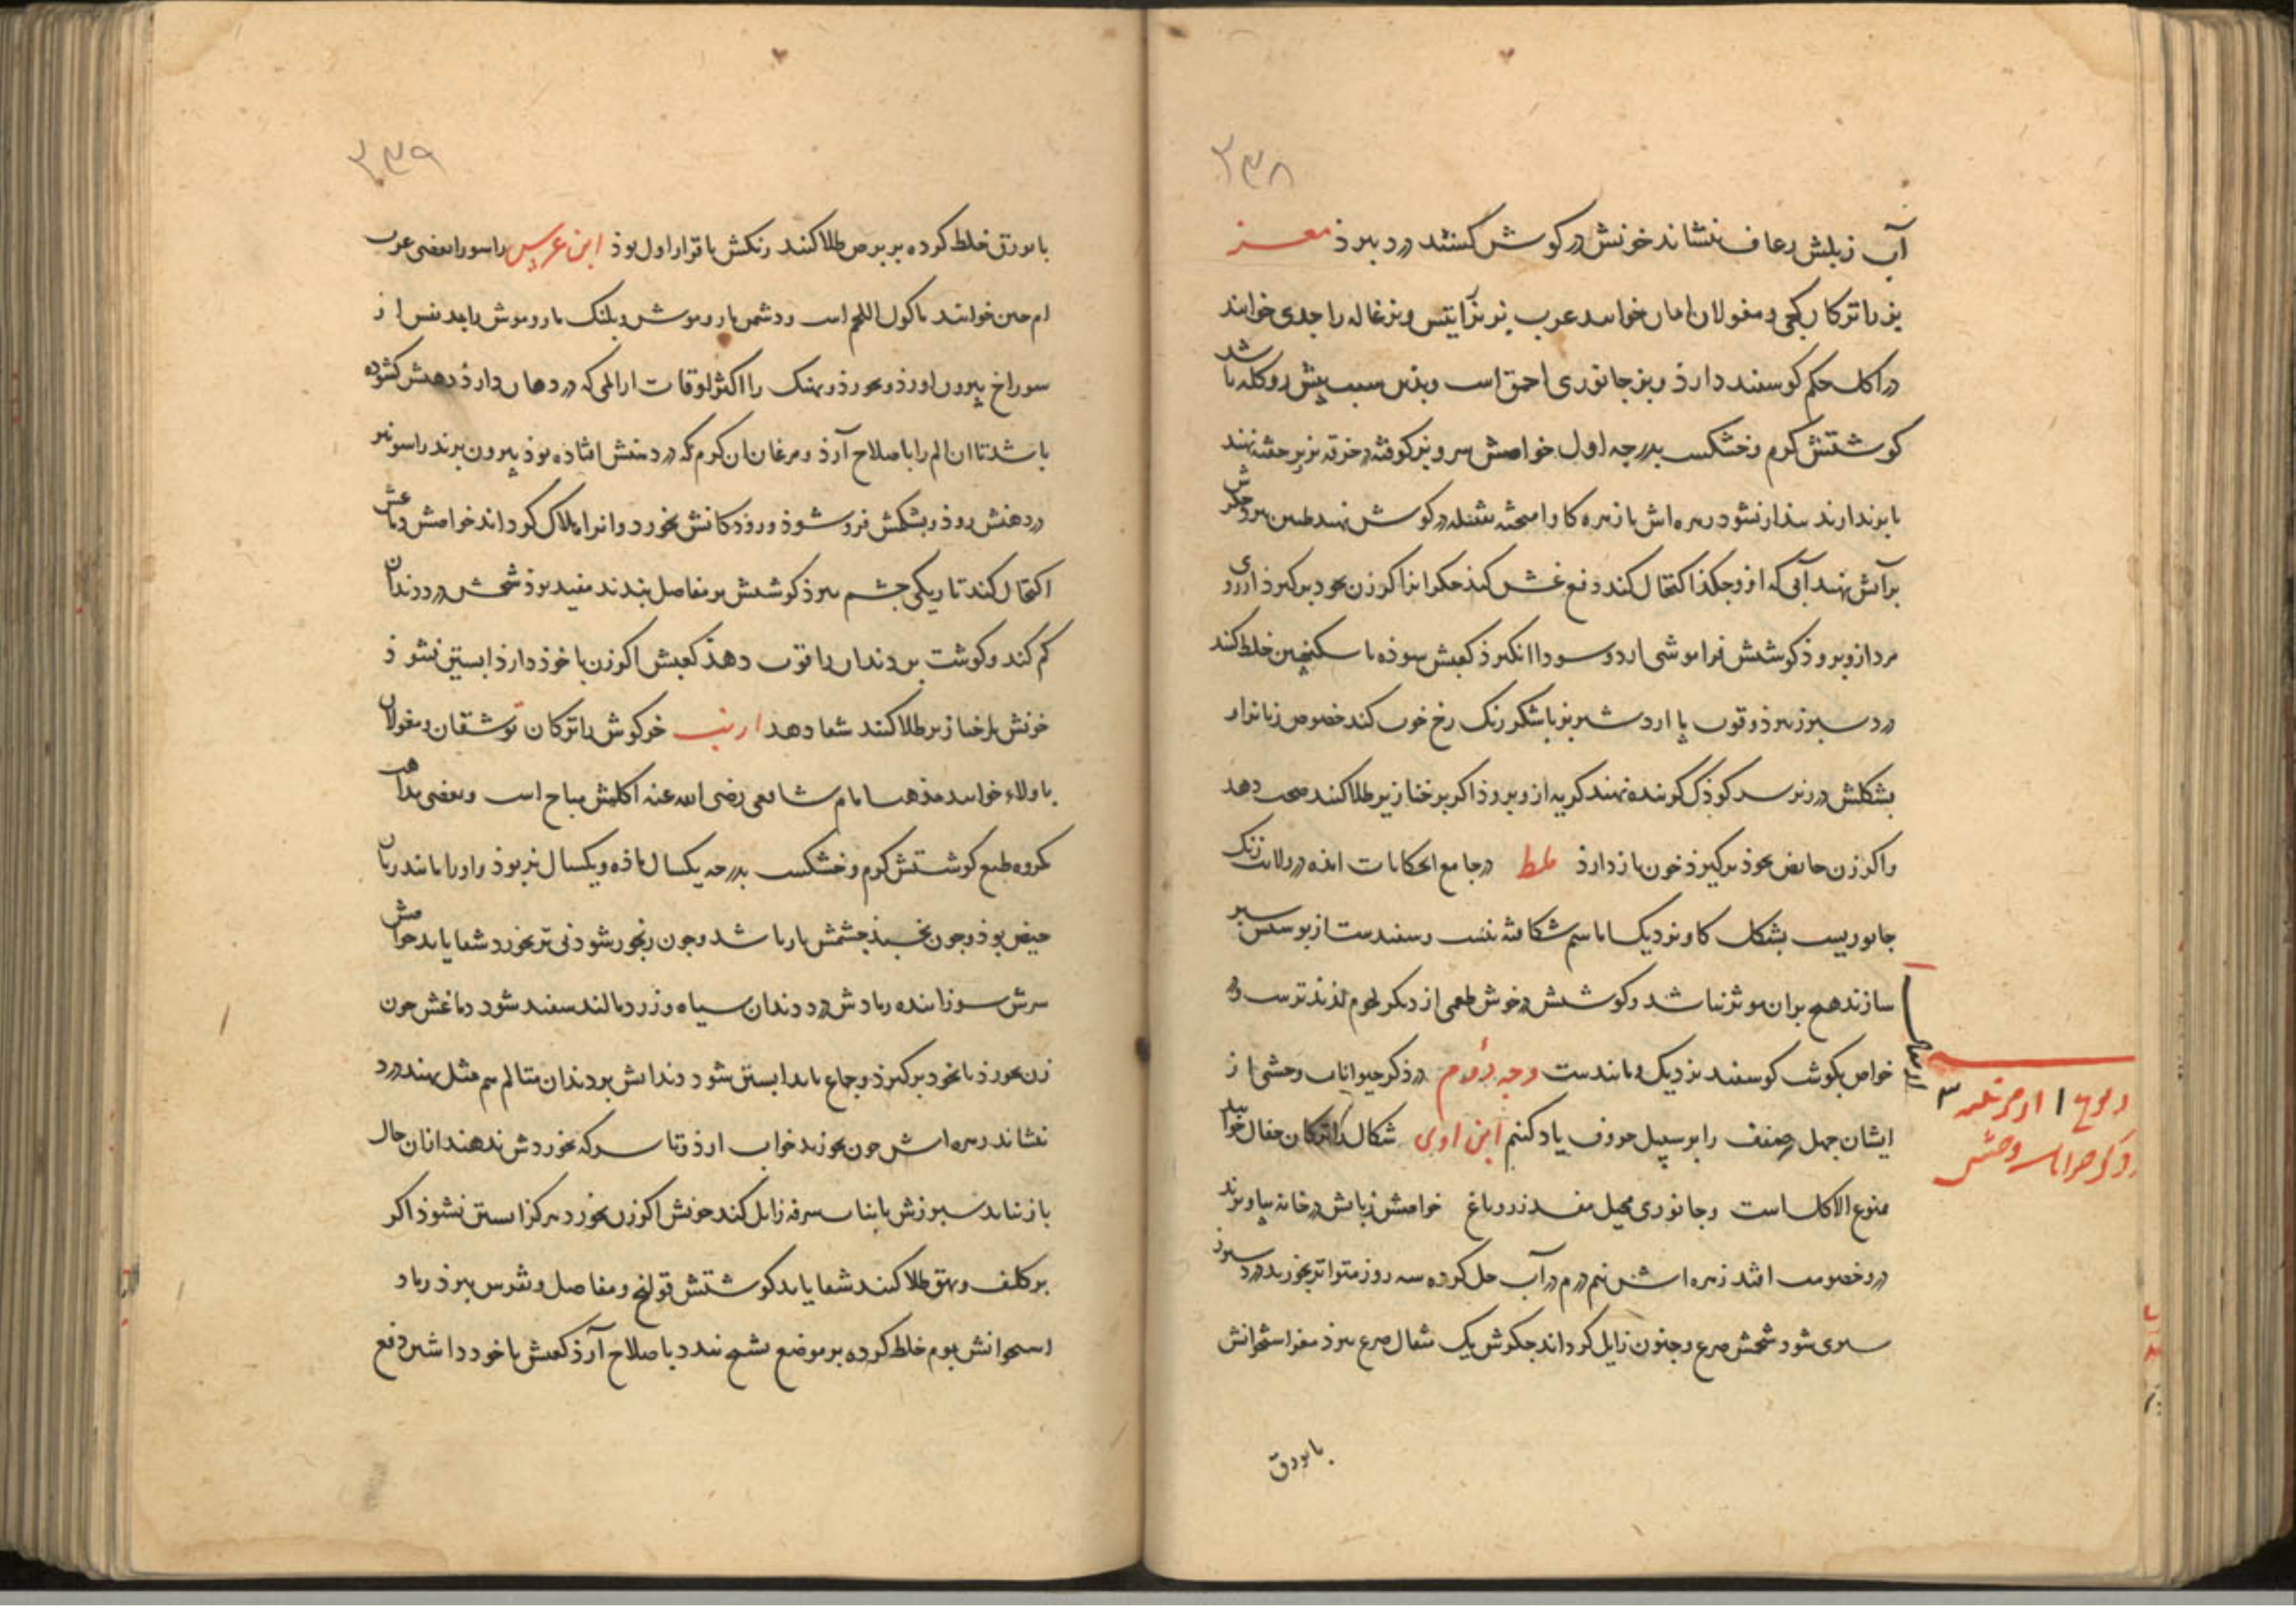 ۲۳۸
آب زبلش رعاف بنشاند خونش در کوش کنند درد ببرد معز
بز را ترکان کجی و مغولان امان خوانند عرب بز نر را تیس و بزغاله را جدی خوانند
در اکل حکم کوسفند دارذ و بز جانوری احمق است و بذین سبب پیش رو کله باشد
کوشتش کرم و خشکست بدرجه اول خواصش سروبز کوفته در خرقه زیر خفته نهند
تا برندارند بیدار نشود زهره اش با زهره کاو آمیخته فتیله در کوش نهند طنین ببرد جکرش
بر آتش نهند آبی که ازو جکذ اکتحال کنند دفع غش کند جکر بز اکر زن بخود برکیرذ آرزوی
مرد ازو برود کوشتش فراموشی آرد و سودا انکیزذ کعبش سوذه با سکنجبین خلط کند
درد سپرز ببرذ و قوت باه آرد شیر بز با شکر رنک رخ خوب کند خصوص زنانرا و
بشکلش در زیر سر کوذک کرینده نهند کریه ازو برود اکر بر خنازیر طلا کنند صحت دهد
و اکر زن حایض بخوذ برکیرذ خون باز دارذ ملط در جامع الحکایات آمذه در ولایت زنک
جانوریست بشکل کاو نزدیک اما سم شکافته نیست و سفندست از پوستش سپر
سازند هیچ بران موثر نباشد و کوشتش در خوش طعمی از دیکر لحوم لذیذترست و
خواص بکوشت کوسفند نزدیک و مانندست وجه دوم در ذکر حیوانات وحشی از
ایشان چهل صنف را بر سبیل حروف یاد کنیم ابن اوی شکال را ترکان جقال خوانند
ممنوع الاکل است و جانوری محیل مفسد زرو باغ خواصش زبانش در خانه بیاویزند
درو خصومت افتد زهره اش نیم درم در آب حل کرده سه روز متواتر بخورند درد سپرز
سری شود شحمش صرع و جنون زایل کرداند جکرش یک مثقال صرع ببرذ مغز استخوانش
با بورق
۲۳۹
با بورق خلط کرده بر برص طلا کنند رنکش با قرار اول بوذ ابن عرس راسو را بعضی عرب
ام حبین خوانند ماکول اللحم است و دشمن مار و موش و نهنک مار و موش را بجد نفس از
سوراخ بیرون آورذ و بخورذ و نهنک را اکثر اوقات از المی که در دهان دارذ دهنش کشوده
باشد تا آن الم را باصلاح آرذ و مرغان آن کرم که در دهنش افتاده بوذ بیرون برند راسو نیز
در دهنش روذ و بشکمش فرو شوذ و رودکانش بخورد و او را هلاک کرداند خواصش دماغش
اکتحال کند تاریکی جشم ببرذ کوشتش بر مفاصل بندند مفید بوذ شحمش درد دندان
کم کند و کوشت بن دندان را قوت دهذ کعبش اکر زن با خوذ دارذ آبستن نشوذ
خونش بر خنازیر طلا کنند شفا دهد ارنب خرکوش را ترکان توشقان و مغولان
باولاء خوانند مذهب امام شافعی رضی الله عنه اکلش مباح است و بعضی مذاهب
مکروه طبع کوشتش کرم و خشکست بدرجه یکسال ماذه و یکسال نر بوذ و او را مانند زنان
حیض بوذ و چون بخسبد جشمش باز باشد و چون رنجور شود نی تر بخورد شفا یابد خواصش
سرش سوزانیده رمادش در دندان سیاه و زرد مالند سفید شود دماغش چون
زن بخورذ یا بخود برکیرذ و جماع یابد آبستن شود دندانش بر دندان متالم هم مثل نهند درد
نشاند زهره اش چون بخورند خواب آرذ و تا سرکه بخوردش ندهند از ان حال
باز نیاید سپرزش با نبات سرفه زایل کند خونش اکر زن بخورد هرکز آبستن نشوذ اکر
بر کلف و بهق طلا کنند شفا یابد کوشتش قولنج و مفاصل و نقرس ببرذ رماد
استخوانش بموم خلط کرده بر موضع تشنج بندد باصلاح آرذ کعبش با خود داشتن دفع